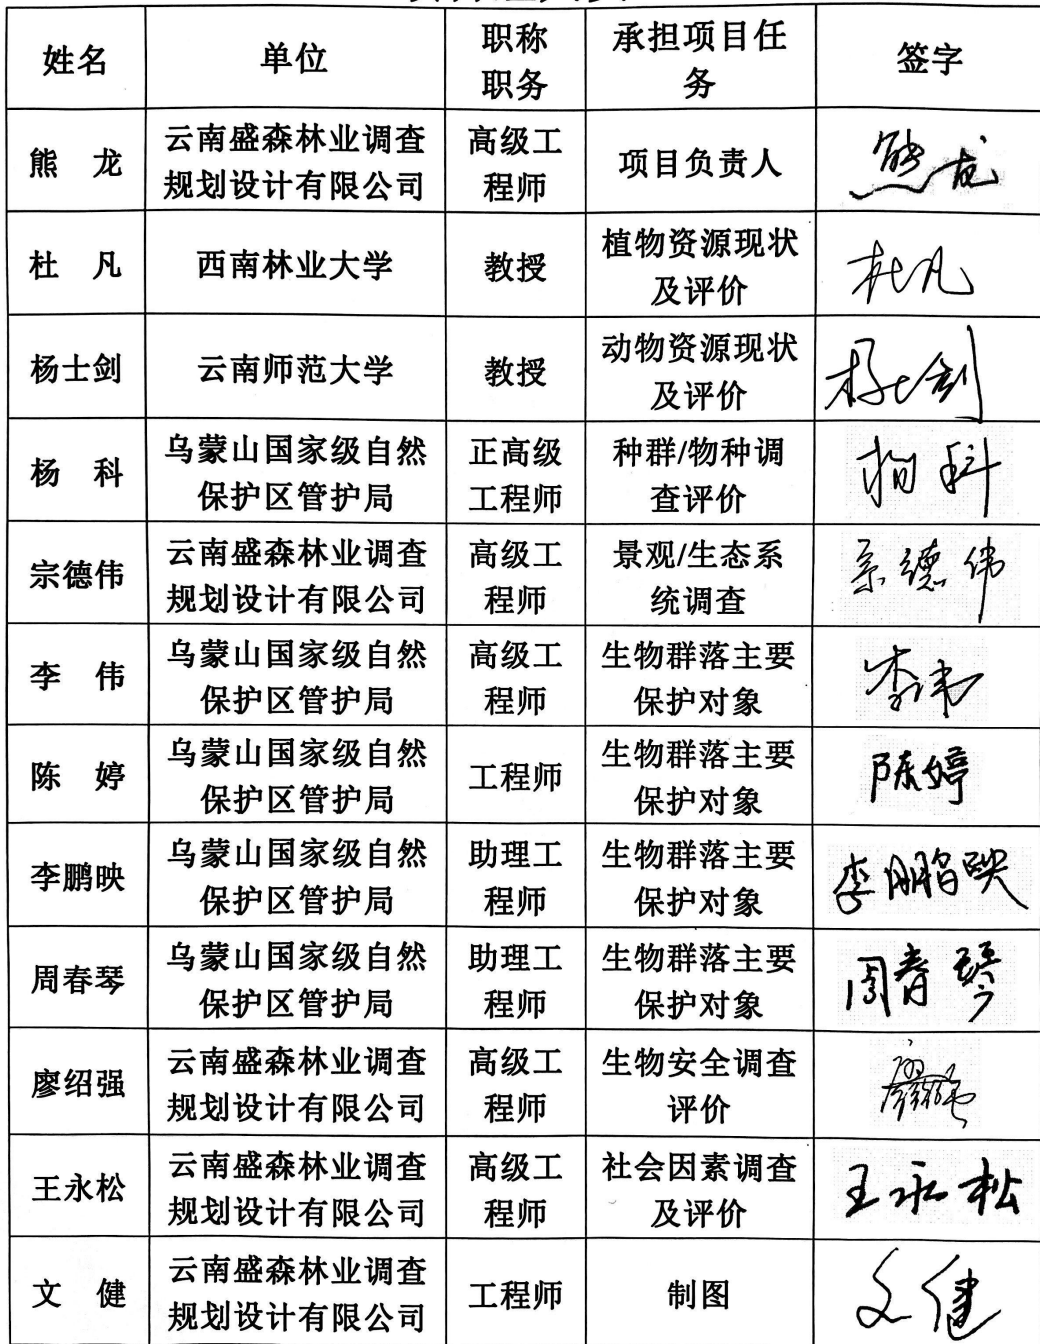 姓名 单位 职称职务 承担项目任务 签字
熊 龙 云南盛森林业调查规划设计有限公司 高级工程师 项目负责人 熊龙
杜 凡 西南林业大学 教授 植物资源现状及评价 杜凡
杨士剑 云南师范大学 教授 动物资源现状及评价 杨士剑
杨 科 乌蒙山国家级自然保护区管护局 正高级工程师 种群/物种调查评价 杨科
宗德伟 云南盛森林业调查规划设计有限公司 高级工程师 景观/生态系统调查 宗德伟
李 伟 乌蒙山国家级自然保护区管护局 高级工程师 生物群落主要保护对象 李伟
陈 婷 乌蒙山国家级自然保护区管护局 工程师 生物群落主要保护对象 陈婷
李鹏映 乌蒙山国家级自然保护区管护局 助理工程师 生物群落主要保护对象 李鹏映
周春琴 乌蒙山国家级自然保护区管护局 助理工程师 生物群落主要保护对象 周春琴
廖绍强 云南盛森林业调查规划设计有限公司 高级工程师 生物安全调查评价
王永松 云南盛森林业调查规划设计有限公司 高级工程师 社会因素调查及评价 王永松
文 健 云南盛森林业调查规划设计有限公司 工程师 制图 文健